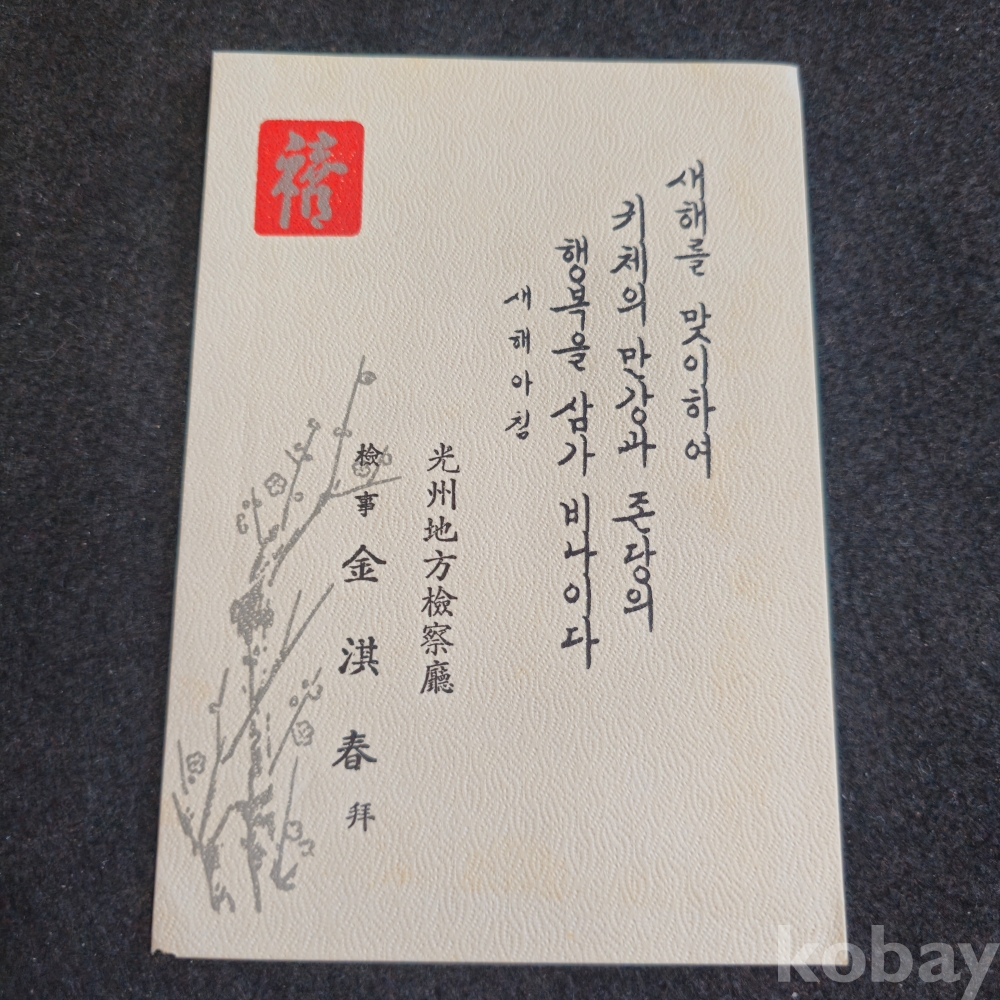 새해를 맞이하여
귀체의 만강과 존당의
행복을 삼가 비나이다
새해아침
光州地方檢察廳
檢事 金淇春 拜
禧
kobay